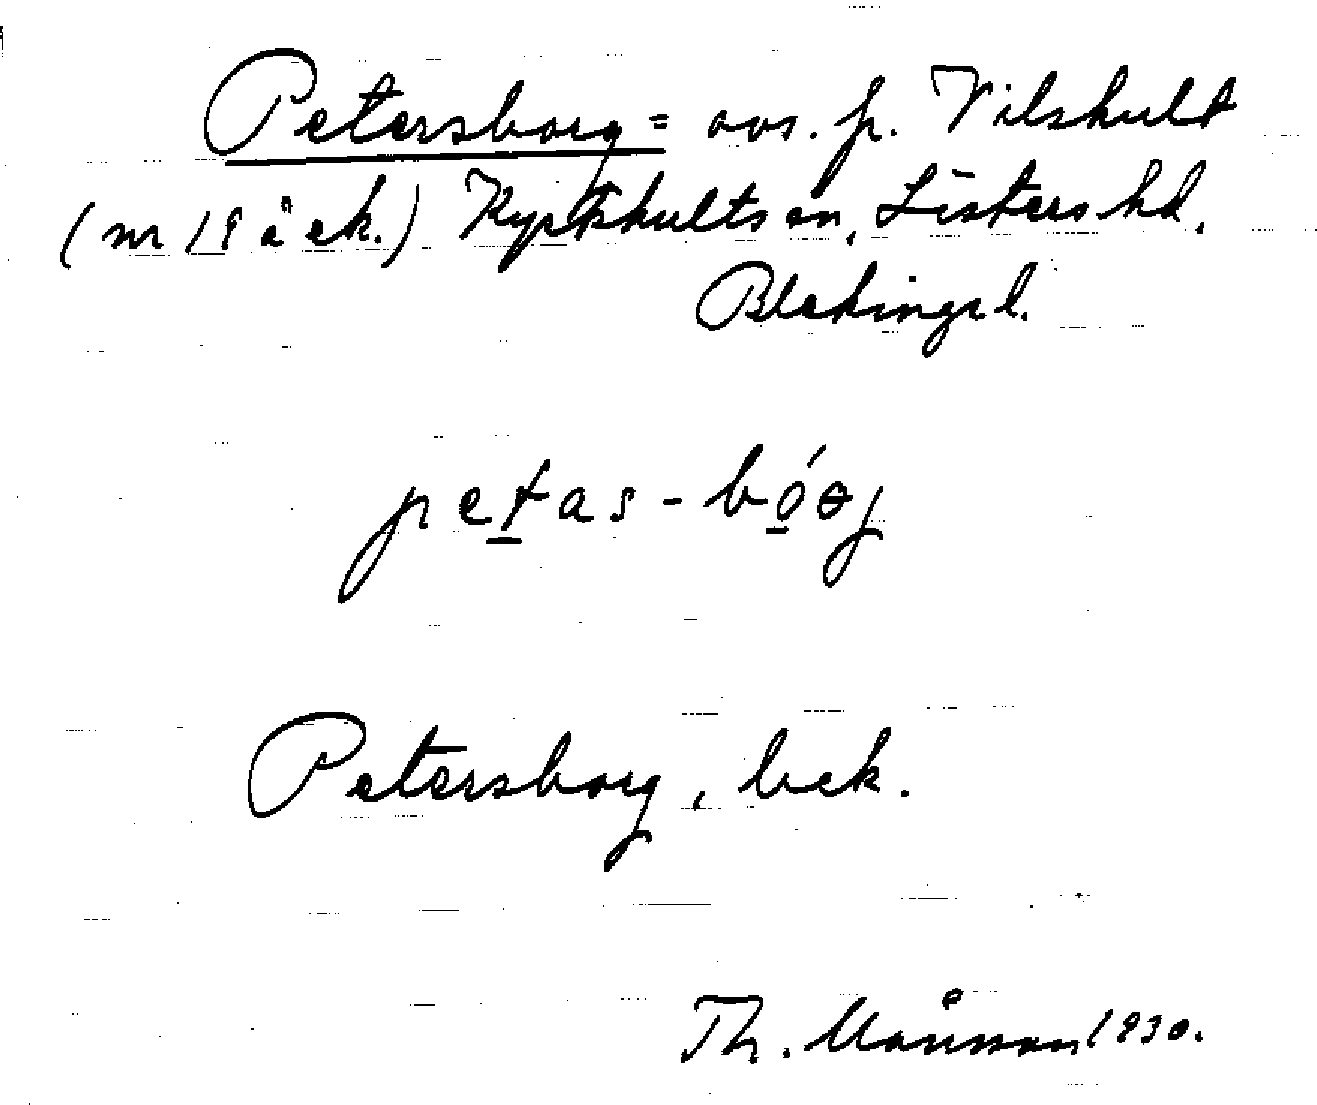 Petersborg = avs. fr. Vilshult
(nr 19 å ek.) Kyrkhults sn, Listers hd,
Blekinge l.
petas-bóɵj
Petersborg, bek.
Th. Månsson 1930.